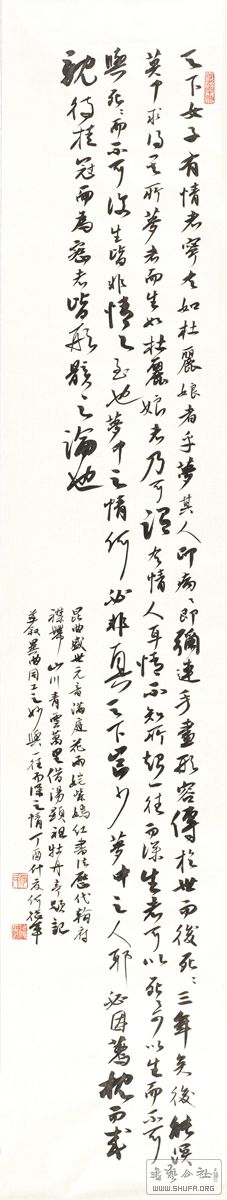 天下女子有情者寧有如杜麗娘者乎夢其人即病〻即彌連手畫形容傳於世而後死〻三年矣復能溟
莫中求得其所夢者而生如杜麗娘者乃可謂有情人耳情不知所起一往而深生者可以死〻可以生而不可
與死〻而不可復生皆非情之至也夢中之情何必非真天下豈少夢中之人耶必因薦枕而成
親待掛冠而為密者皆形骸之論也
昆曲盛世元音滿庭花雨姹紫嫣紅書法歷代翰府
襟懷山川青雲萬里借湯顯祖牡丹亭題記
並敘異曲同工之妙與一往而深之情丁酉
書藝公社
WWW.SHUFA.ORG